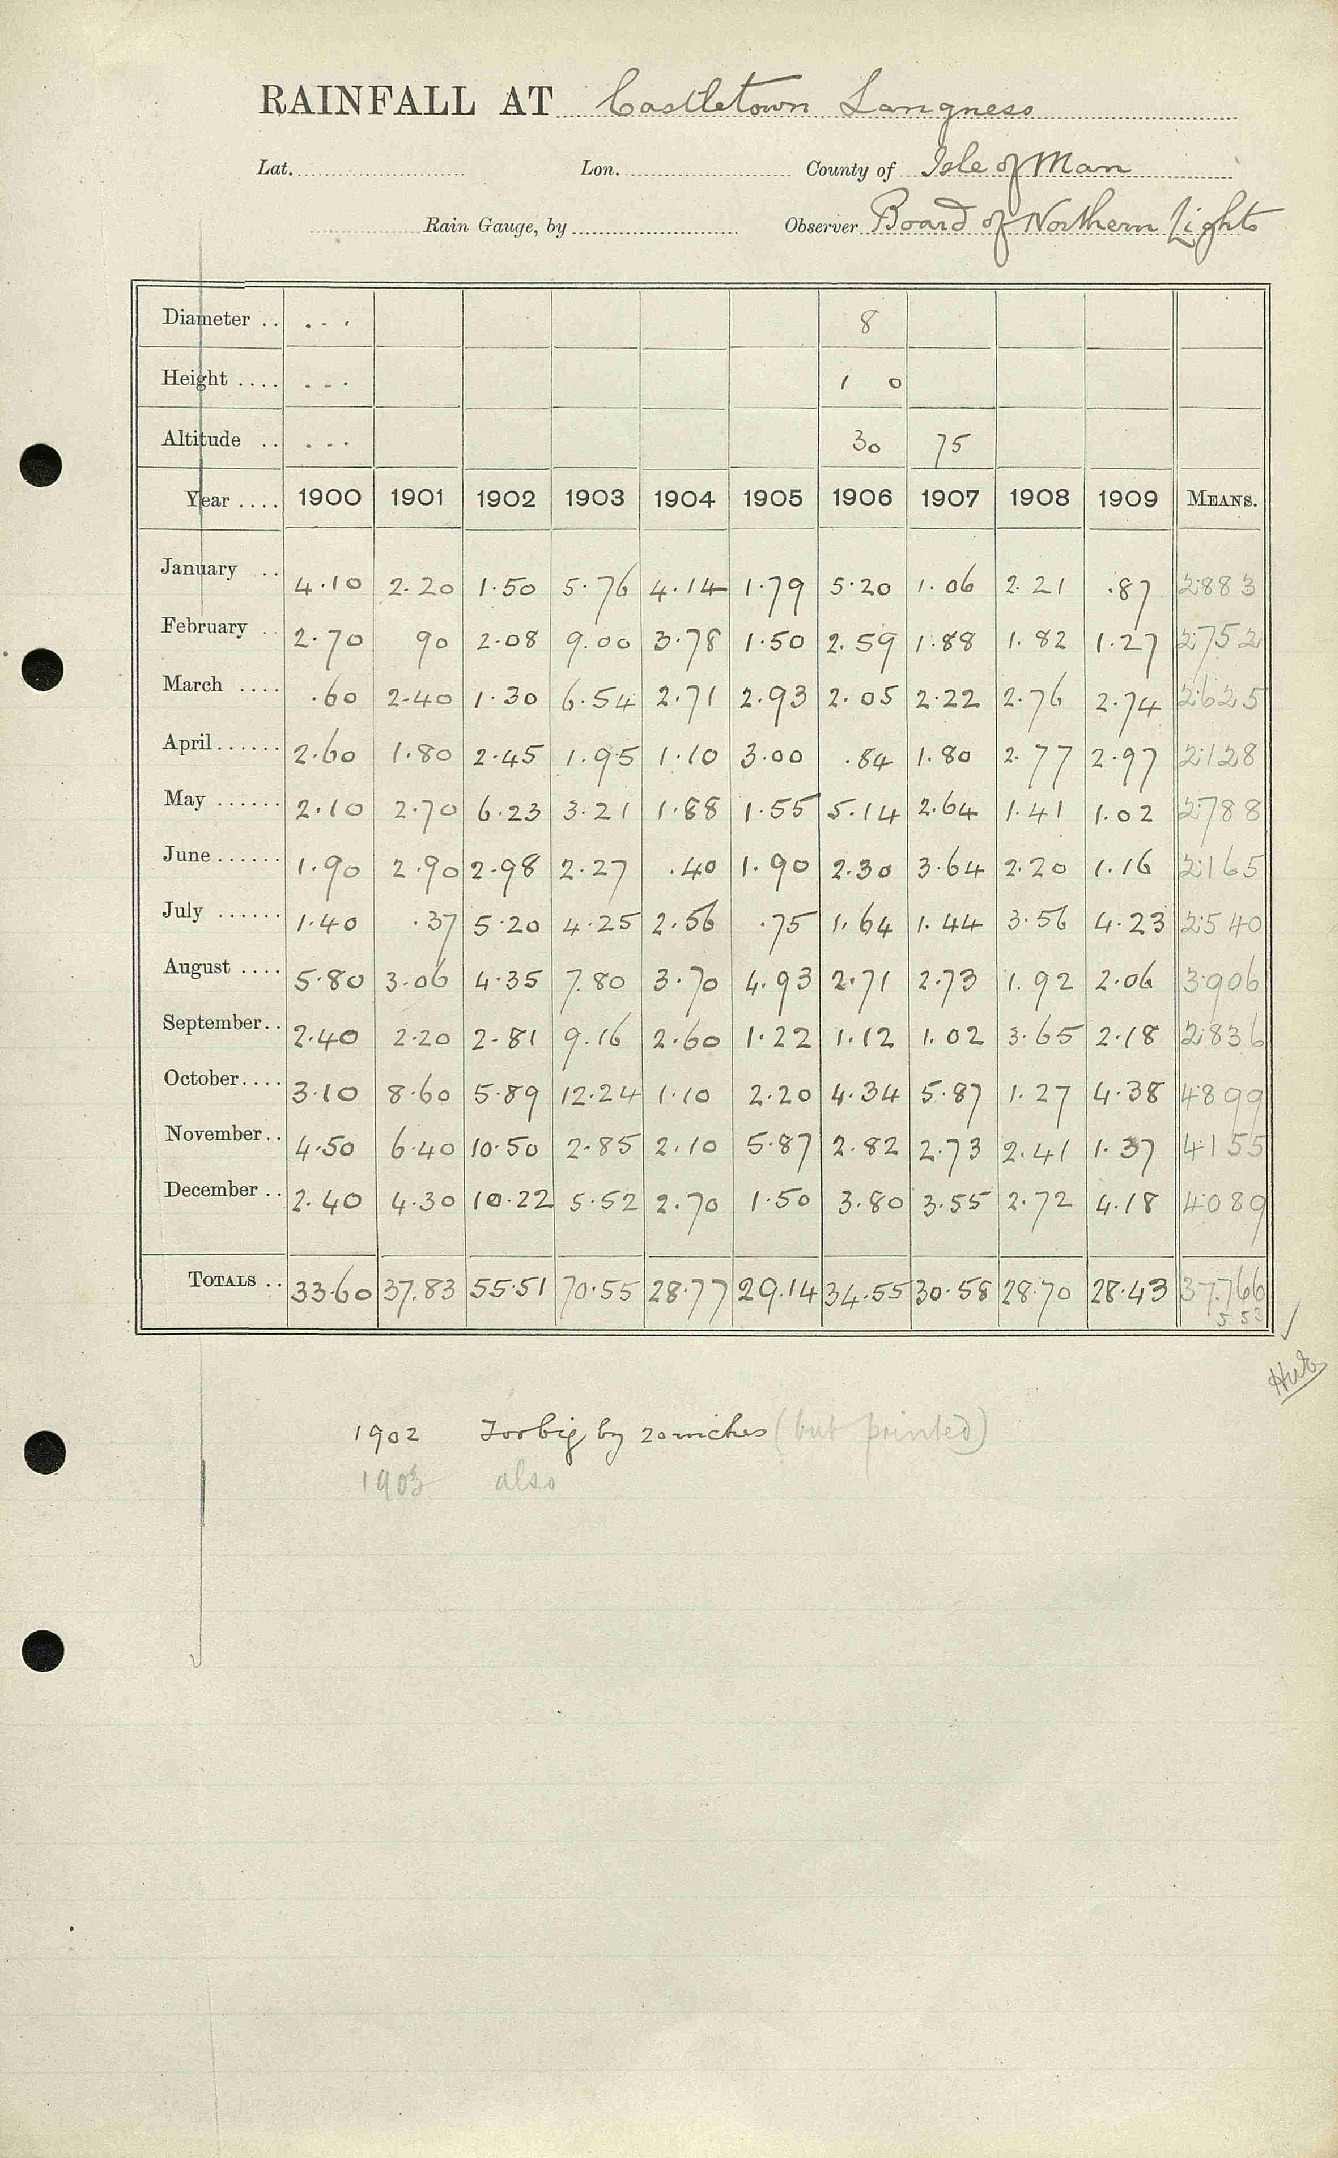 RAINFALL AT Castletown Langness
Lat. Lon. County of Isle of Man
Rain Gauge, by Observer Board of Northern Lights
Diameter .. ... 8
Height .... ... 1 0
Altitude .. ... 30 75
Year .... 1900 1901 1902 1903 1904 1905 1906 1907 1908 1909 MEANS.
January .. 4.10 2.20 1.50 5.76 4.14 1.79 5.20 1.06 2.21 .87 2.883
February .. 2.70 90 2.08 9.00 3.78 1.50 2.59 1.88 1.82 1.27 2.752
March .... .60 2.40 1.30 6.54 2.71 2.93 2.05 2.22 2.76 2.74 2.625
April ...... 2.60 1.80 2.45 1.95 1.10 3.00 .84 1.80 2.77 2.97 2.128
May ...... 2.10 2.70 6.23 3.21 1.88 1.55 5.14 2.64 1.41 1.02 2.788
June ...... 1.90 2.90 2.98 2.27 .40 1.90 2.30 3.64 2.20 1.16 2.165
July ...... 1.40 .37 5.20 4.25 2.56 .75 1.64 1.44 3.56 4.23 2.540
August .... 5.80 3.06 4.35 7.80 3.70 4.93 2.71 2.73 1.92 2.06 3.906
September.. 2.40 2.20 2.81 9.16 2.60 1.22 1.12 1.02 3.65 2.18 2.836
October.... 3.10 8.60 5.89 12.24 1.10 2.20 4.34 5.87 1.27 4.38 4.899
November.. 4.50 6.40 10.50 2.85 2.10 5.87 2.82 2.73 2.41 1.37 4.155
December .. 2.40 4.30 10.22 5.52 2.70 1.50 3.80 3.55 2.72 4.18 4.089
TOTALS .. 33.60 37.83 55.51 70.55 28.77 29.14 34.55 30.58 28.70 28.43 37.766
5 53
1902 Too big by 20 inches (but printed)
1903 also